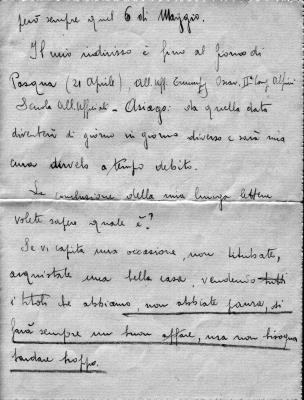 però sempre quel 6 di Maggio.
Il mio indirizzo è fino al giorno di
Pasqua (21 Aprile), All. Uff. Oscar. IIª Comp. Alpini
Scuola All. Ufficiali - Asiago: da quella data
diventerà di giorno in giorno diverso e sarà mia
cura darvelo a tempo debito.
La conclusione della mia lunga lettera
volete sapere quale è?
Se vi capita una occasione, non titubate,
acquistate una bella casa, vendendo tutti
i titoli che abbiamo, non abbiate paura, si
farà sempre un buon affare, ma non bisogna
tardare troppo.